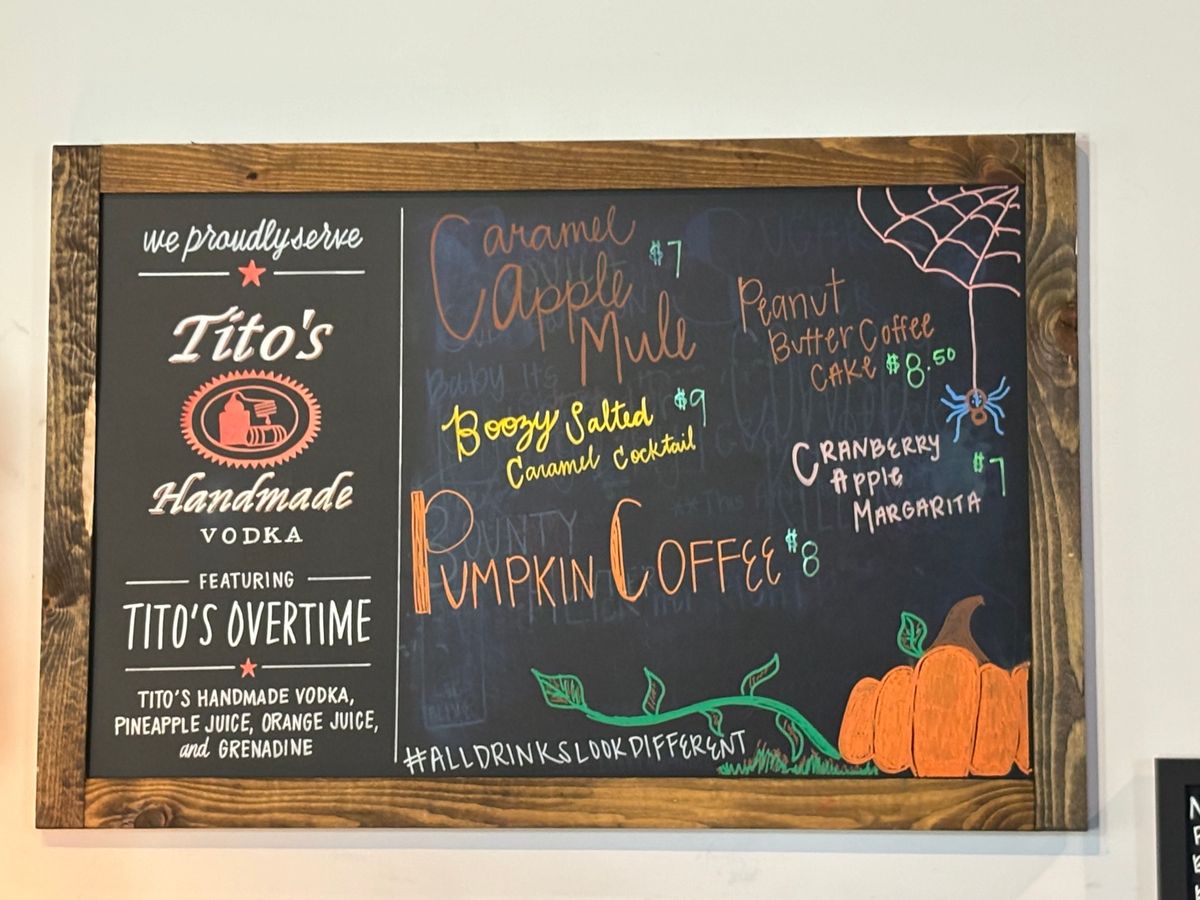 we proudly serve
Tito's
Handmade
VODKA
FEATURING
TITO'S OVERTIME
TITO'S HANDMADE VODKA,
PINEAPPLE JUICE, ORANGE JUICE,
and GRENADINE
Caramel
Apple $7
Mule
Peanut
Butter Coffee
CAKE $8.50
Boozy Salted $9
Caramel Cocktail
CRANBERRY
Apple $7
MARGARITA
PUMPKIN COFFEE $8
Baby Its
BOUNTY
#ALLDRINKSLOOKDIFFERENT